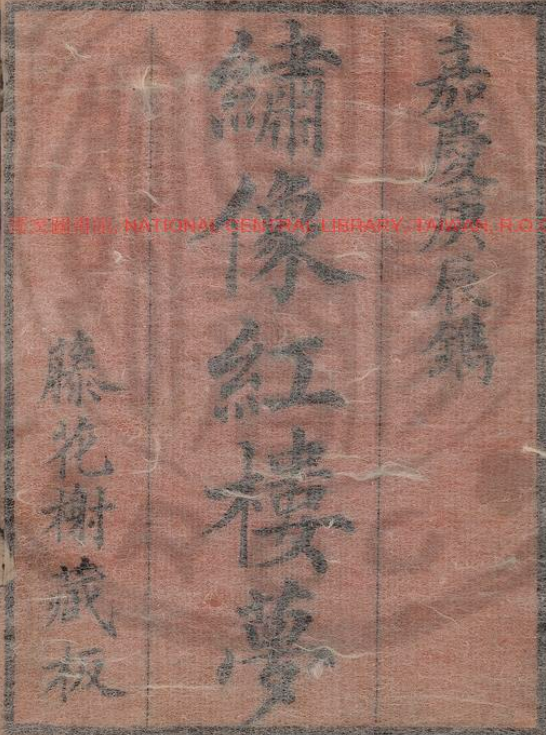 嘉慶庚辰鐫
繡像紅樓夢
藤花榭藏板
NATIONAL CENTRAL LIBRARY, TAIWAN, R.O.C